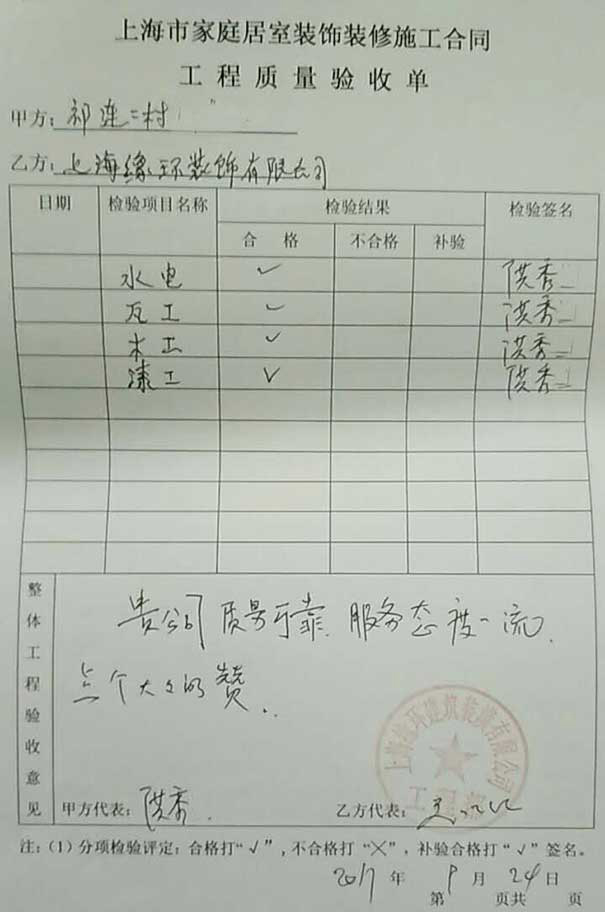 上海市家庭居室装饰装修施工合同
工程质量验收单
甲方：祁连二村
乙方：上海缘环装饰有限公司
日期 检验项目名称 检验结果 检验签名
合格 不合格 补验
水电 ✓ 洪秀
瓦工 ✓ 洪秀
木工 ✓ 洪秀
漆工 ✓ 洪秀
整体工程验收意见
贵公司质量可靠.服务态度一流.
点个大大的赞..
甲方代表：洪秀.
乙方代表：
注：（1）分项检验评定：合格打“√”，不合格打“╳”，补验合格打“√”签名。
2017年9月24日
第 页共 页